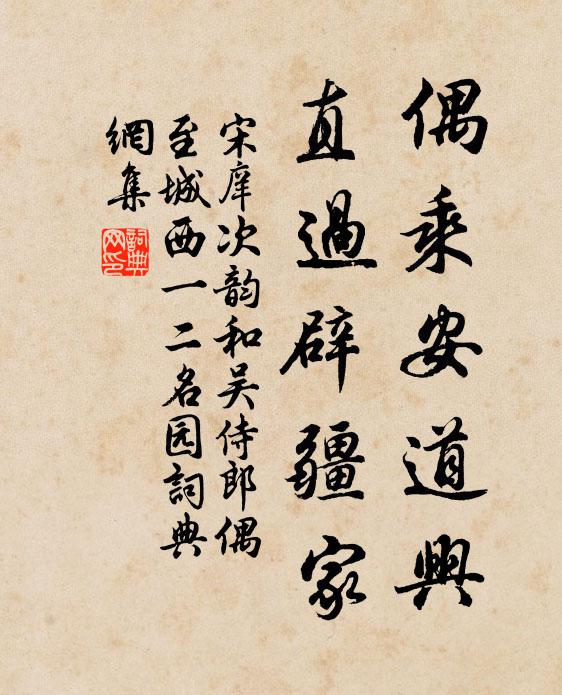 偶乘安道興
直過辟疆家
宋庠次韵和吴侍郎偶
至城西一二名园詞典
網集
詞典网印